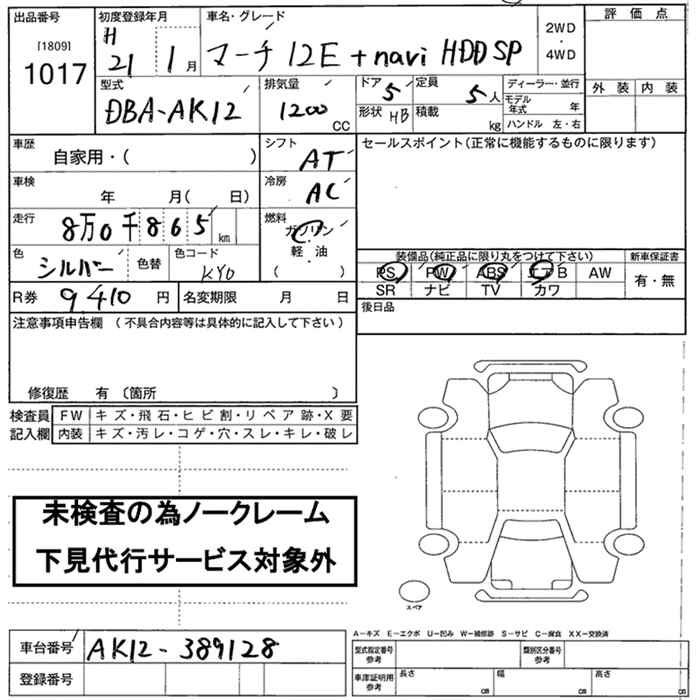 出品番号 初度登録年月 車名・グレード 評価点
[1809] H 2WD
1017 21 1月 マーチ 12E + navi HDD SP ・
4WD
型式 排気量 ドア 5 定員 5人 ディーラー・並行 外装 内装
DBA-AK12 1200 CC 形状 HB 積載 kg モデル年式 年
ハンドル 左・右
車歴 シフト セールスポイント(正常に機能するものに限ります)
自家用・( ) AT
車検 冷房
年 月( 日) AC
走行 燃料
8万0千865km ガソリン
軽・油
( )
色 色替 色コード 装備品(純正品に限り丸をつけて下さい) 新車保証書
シルバー KY0 PS PW ABS エアB AW 有・無
SR ナビ TV カワ
R券 9,410円 名変期限 月 日 後日品
注意事項申告欄 (不具合内容等は具体的に記入して下さい)
修復歴 有 〔箇所 〕
検査員 FW キズ・飛石・ヒビ割・リペア跡・X要
記入欄 内装 キズ・汚レ・コゲ・穴・スレ・キレ・破レ
未検査の為ノークレーム
下見代行サービス対象外
スペア
A−キズ E−エクボ U−凹み W−補修跡 S−サビ C−腐食 XX−交換済
車台番号 AK12-389128 型式指定番号 参考 類別区分番号 参考
登録番号 車庫証明用 参考 長さ cm 幅 cm 高さ cm